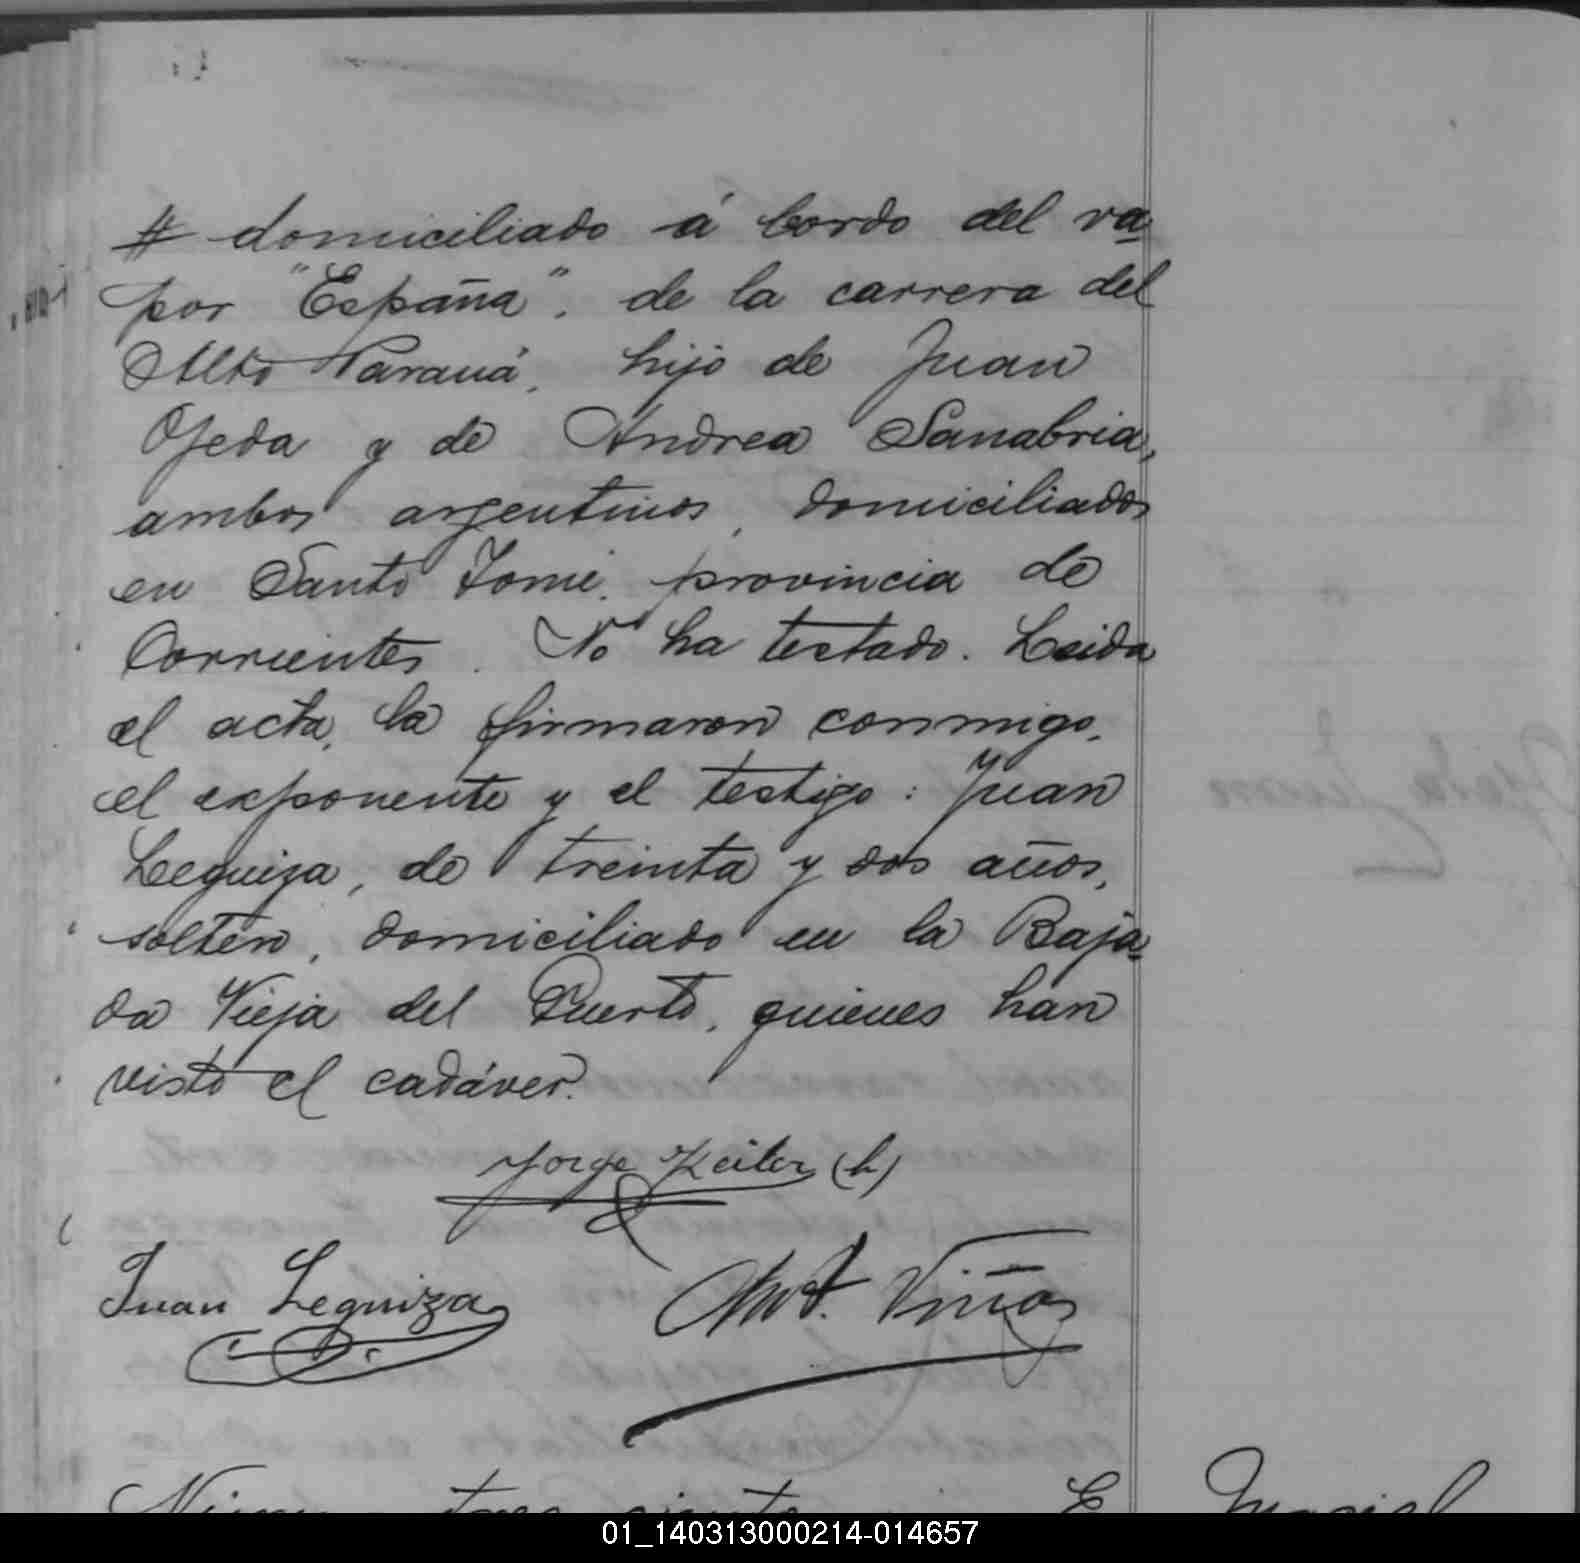 # domiciliado á bordo del va-
por "España", de la carrera del
Alto Paraná, hijo de Juan
Ojeda y de Andrea Sanabria,
ambos argentinos, domiciliados
en Santo Tomé, provincia de
Corrientes. No ha testado. Leida
el acta, la firmaron conmigo,
el exponente y el testigo: Juan
Leguiza, de treinta y dos años,
soltero, domiciliado en la Baja-
da Vieja del Puerto, quienes han
visto el cadáver.
Jorge (h)
Juan Leguiza Ant. Viñas
01_140313000214-014657